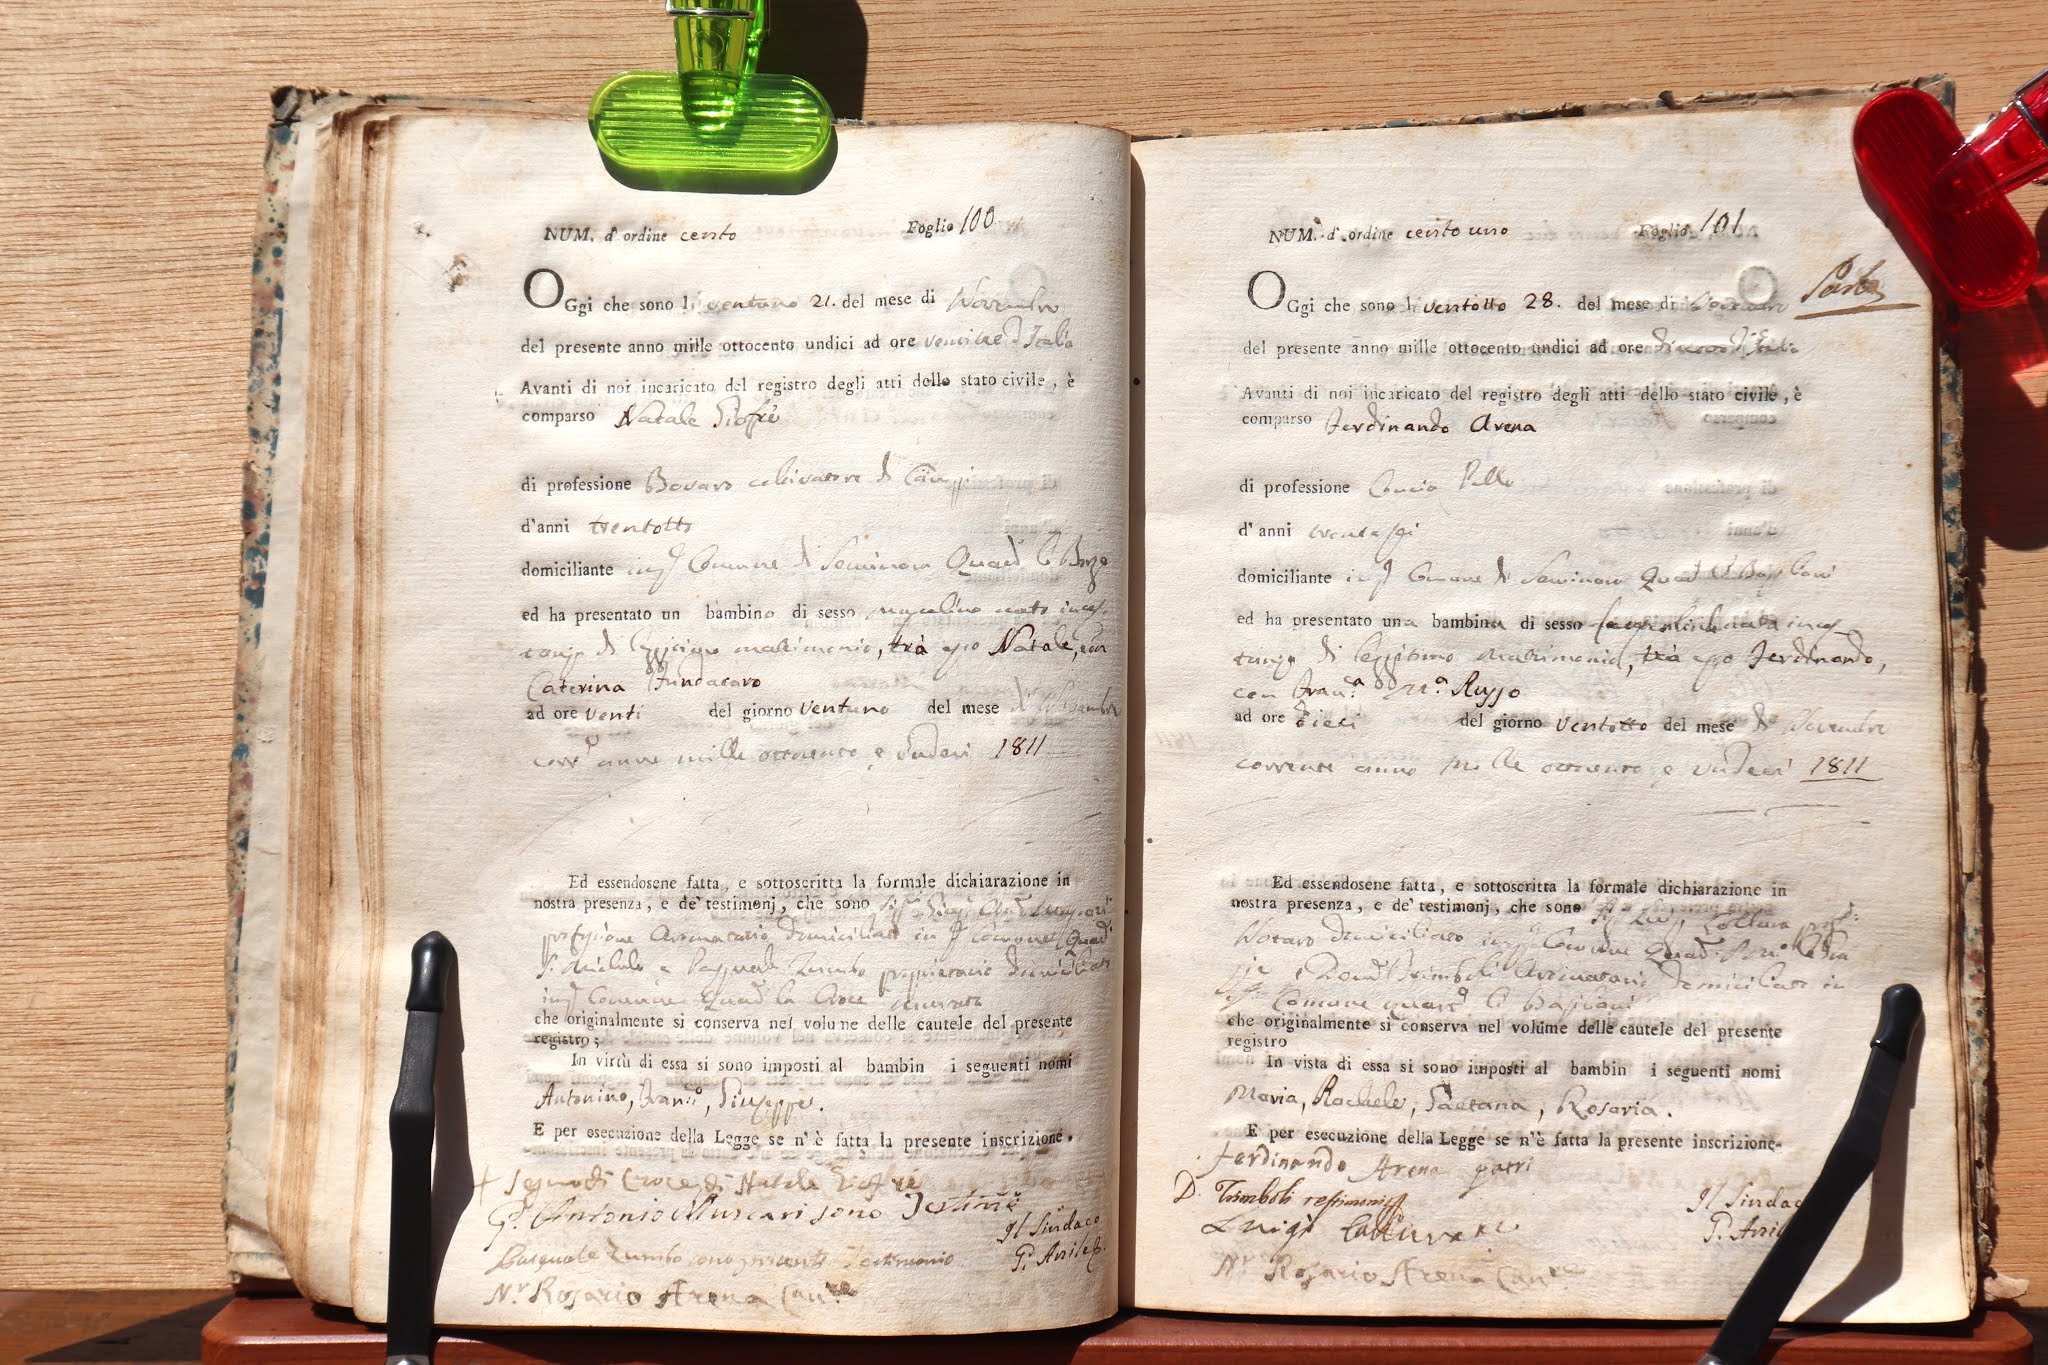 NUM. d'ordine cento Foglio 100
OGgi che sono li ventuno 21. del mese di Novembre
del presente anno mille ottocento undici ad ore d'Italia
Avanti di noi incaricato del registro degli atti dello stato civile, è
comparso Natale Gioffrè
di professione Bovaro coltivatore di
d'anni trentotto
domiciliante in Comune di Seminara
ed ha presentato un bambino di sesso mascolino nato
di legitimo matrimonio, trà esso Natale, con
Caterina Fundacaro
ad ore venti del giorno ventuno del mese di Novembre
anno mille ottocento e undeci 1811
Ed essendosene fatta, e sottoscritta la formale dichiarazione in
nostra presenza, e de' testimonj, che sono
professione Aromatario domiciliato in Comune
e Pasquale Zumbo proprietario domiciliato
Comune la Croce
che originalmente si conserva nel volume delle cautele del presente
registro;
In virtù di essa si sono imposti al bambin i seguenti nomi
Antonino, Fran.co, Giuseppe.
E per esecuzione della Legge se n'è fatta la presente inscrizione.
+ Segno di Croce di Natale Gioffrè
Antonio Muscari sono
Il Sindaco
Pasquale Zumbo sono presente Testimonio
N.r Rosario Arena
NUM. d'ordine cento uno Foglio 101
OGgi che sono li ventotto 28. del mese di Novembre
del presente anno mille ottocento undici ad ore d'Italia
Avanti di noi incaricato del registro degli atti dello stato civile, è
comparso Ferdinando Arena
di professione Concia Pelle
d'anni
domiciliante in Comune di Seminara
ed ha presentato una bambina di sesso nata
di legitimo matrimonio, trà esso Ferdinando,
con Fran.a Russo
ad ore dieci del giorno ventotto del mese di Novembre
corrente anno mille ottocento e undeci 1811
Ed essendosene fatta, e sottoscritta la formale dichiarazione in
nostra presenza, e de' testimonj, che sono
Notaro domiciliato Comune
Trimboli Aromatario domiciliato in
Comune
che originalmente si conserva nel volume delle cautele del presente
registro
In vista di essa si sono imposti al bambin i seguenti nomi
Maria, Rachele, Gaetana, Rosaria.
E per esecuzione della Legge se n'è fatta la presente inscrizione
Ferdinando Arena patri
D. Trimboli
Il Sindaco
Luigi
N.r Rosario Arena